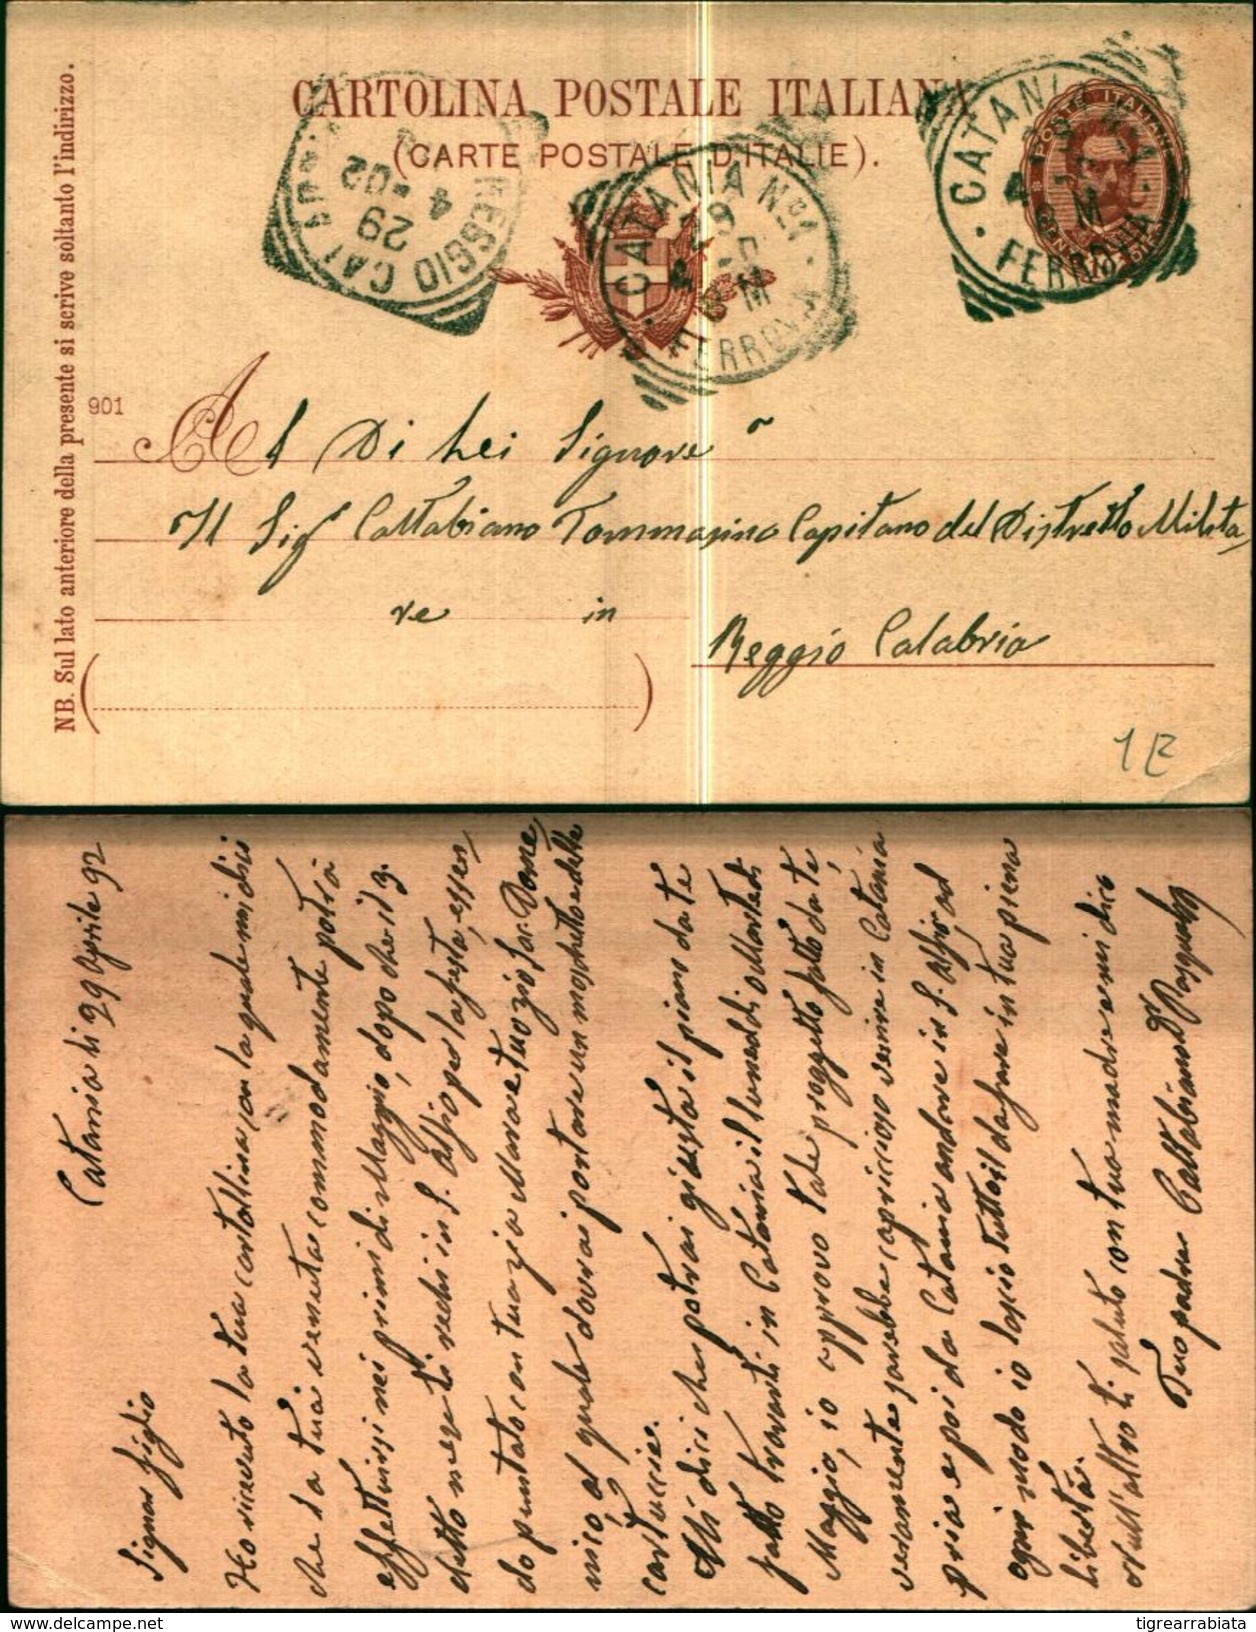 CARTOLINA POSTALE ITALIANA
(CARTE POSTALE D'ITALIE).
NB. Sul lato anteriore della presente si scrive soltanto l'indirizzo.
901
CATANIA
FERROVIA
CATANIA No 1
FERROVIA
REGGIO CAL
29
4-02
Al Di Lei Signore
Il Sig Cattabiano Tommasino Capitano del Distretto Milita
re in
Reggio Calabria
1E
Catania li 29 Aprile 92
Signor figlio
Ho ricevuto la tua cartollina con la quale mi dici
che la tua venuta commodamente potrà
effettuirsi nei primi di Maggio, dopo che il 3.
detto mese ti rechi in S. Alfio per la festa, essen
do puntato con tua zia Maria e tuo zio Sar. Dome
nico, al quale dovrai portare un moschetto e delle
cartuccie.
Mi dici che potrai giusta il piano da te
fatto trovarti in Catania il lunedi o Martedi
Maggio, io approvo tale proggetto fatto da te,
veramente sarebbe capriccioso venire in Catania
pria e poi da Catania andare in S. Alfio, ad
ogni modo io lascio tutto il da fare in tua piena
libertà.
Null'altro ti saluto con tua madre e mi dico
Tuo padre Cattabiano Dr Pasquale
tigrearrabiata